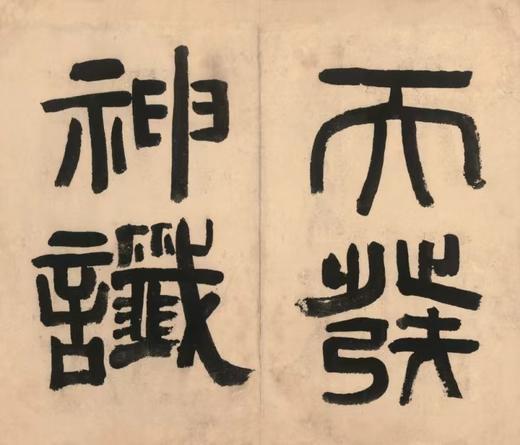 天發
神讖